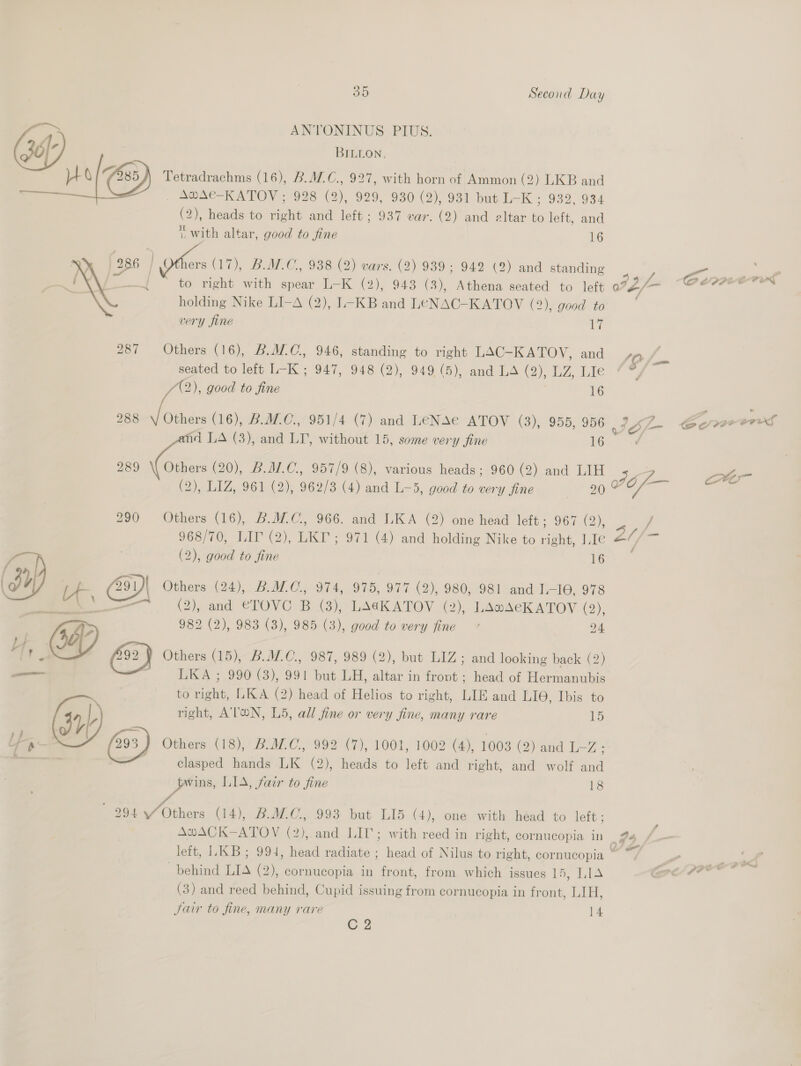 35 Second Day
ANTONINUS PIUS.
BILLON.
36/-
285 Tetradrachms (16), B.M.C., 927, with horn of Ammon (2) LKB and
ΔωΔЄ-KATOV; 928 (2), 929, 930 (2), 931 but L-K; 932, 934
(2), heads to right and left; 937 var. (2) and altar to left, and
with altar, good to fine 16
286 Others (17), B.M.C., 938 (2) vars. (2) 939; 942 (2) and standing
to right with spear L-K (2), 943 (3), Athena seated to left
holding Nike LI-Δ (2), L-KB and LЄNAC-KATOV (2), good to
very fine 17
287 Others (16), B.M.C., 946, standing to right LAC-KATOV, and
seated to left L-K; 947, 948 (2), 949 (5), and LΔ (2), LZ, LIЄ
(2), good to fine 16
288 Others (16), B.M.C., 951/4 (7) and LЄNAЄ ATOV (3), 955, 956
and LΔ (3), and LΓ, without 15, some very fine 16
289 Others (20), B.M.C., 957/9 (8), various heads; 960 (2) and LIH
(2), LIZ, 961 (2), 962/3 (4) and L-5, good to very fine 20
290 Others (16), B.M.C., 966. and LKA (2) one head left; 967 (2),
968/70, LIΓ (2), LKΓ; 971 (4) and holding Nike to right, LIЄ
(2), good to fine 16
291 Others (24), B.M.C., 974, 975, 977 (2), 980, 981 and L-IΘ, 978
(2), and ЄTOVC B (3), LΔЄKATOV (2), LΔωΔЄKATOV (2),
982 (2), 983 (3), 985 (3), good to very fine 24
36/-
292 Others (15), B.M.C., 987, 989 (2), but LIZ; and looking back (2)
LKA; 990 (3), 991 but LH, altar in front; head of Hermanubis
to right, LKA (2) head of Helios to right, LIE and LIΘ, Ibis to
right, L5, all fine or very fine, many rare 15
293 Others (18), B.M.C., 992 (7), 1001, 1002 (4), 1003 (2) and L-Z;
clasped hands LK (2), heads to left and right, and wolf and
twins, LIΔ, fair to fine 18
294 Others (14), B.M.C., 993 but LI5 (4), one with head to left;
ΔωΔCK-ATOV (2), and LIΓ; with reed in right, cornucopia in
left, LKB; 994, head radiate; head of Nilus to right, cornucopia
behind LIΔ (2), cornucopia in front, from which issues 15, LIΔ
(3) and reed behind, Cupid issuing from cornucopia in front, LIH,
fair to fine, many rare 14
C 2